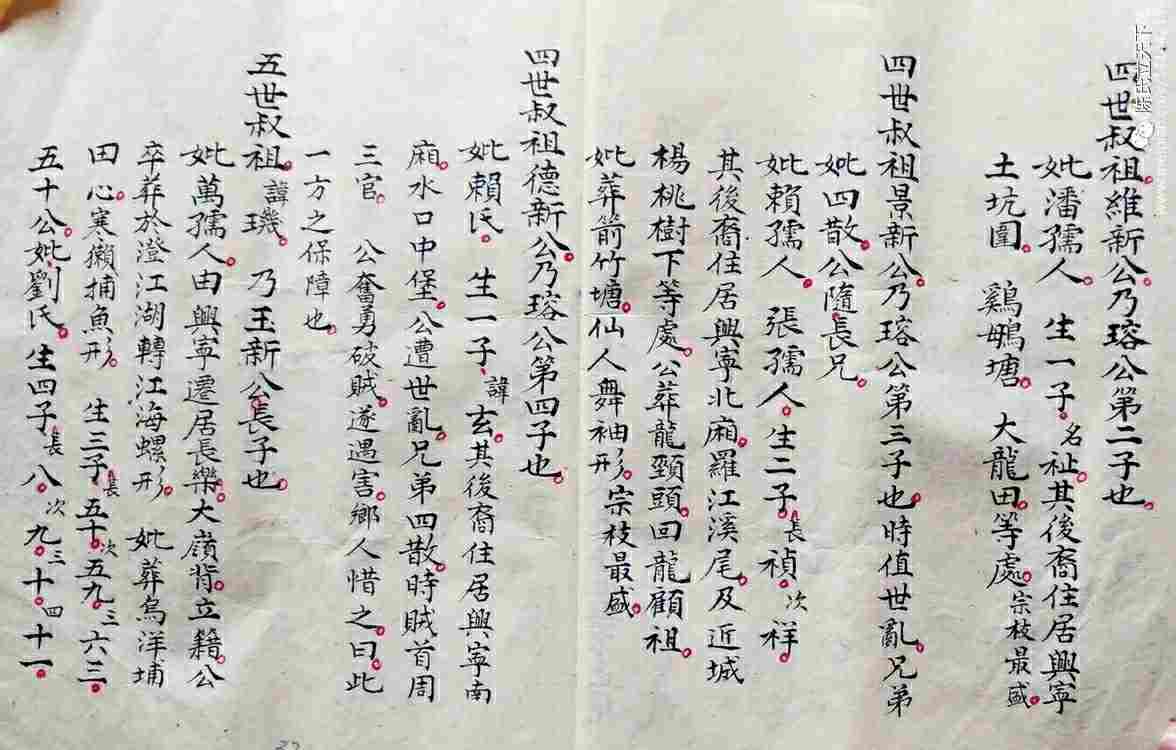 四世叔祖。維新公。乃瑢公第二子也。
妣潘孺人。 生一子。名祉。其後裔住居興寧
土坑圍。 鷄𪃿塘。 大龍田。等處。宗枝最盛。
四世叔祖景新公。乃瑢公第三子也。時值世亂。兄弟
四散。公隨長兄。
妣賴孺人。 張孺人。生二子。長禎。次祥。
其後裔住居興寧北廂。羅江溪尾。及近城
楊桃樹下等處。公葬龍頸頭。回龍顧祖。
妣葬箭竹塘。仙人舞袖形。宗枝最盛。
四世叔祖德新公。乃瑢公第四子也。
妣賴氏。 生一子。諱玄。其後裔住居興寧南
廂。水口中堡。公遭世亂。兄弟四散。時賊首周
三官。 公奮勇破賊。遂遇害。鄉人惜之。曰。此
一方之保障也。
五世叔祖。諱璣。 乃玉新公長子也。
妣萬孺人。由興寧遷居長樂。大嶺背。立籍。公
卒葬於澄江湖轉江海螺形。 妣葬烏洋埔
田心。寒獺捕魚形。 生三子。長五十。次五九。三六三。
五十公。妣劉氏。生四子。長八。次九。三十。四十一。